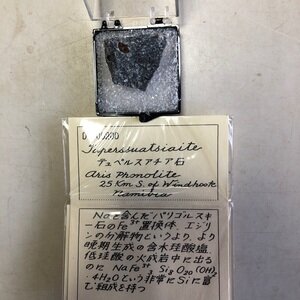 Tuperssuatsiaite
テュペルスアチア石
Aris Phonolite
25 Km S. of Windhoek
Namibia
Naを含んだパリゴルスキ
ー石のFe³⁺置換体. エジリ
ンの分解物というより、より
晩期生成の含水珪酸塩.
低珪酸の火成岩中に出る
のに NaFe³⁺ Si₈O₂₀(OH)₂
4H₂Oという非常にSiに富
む組成を持つ